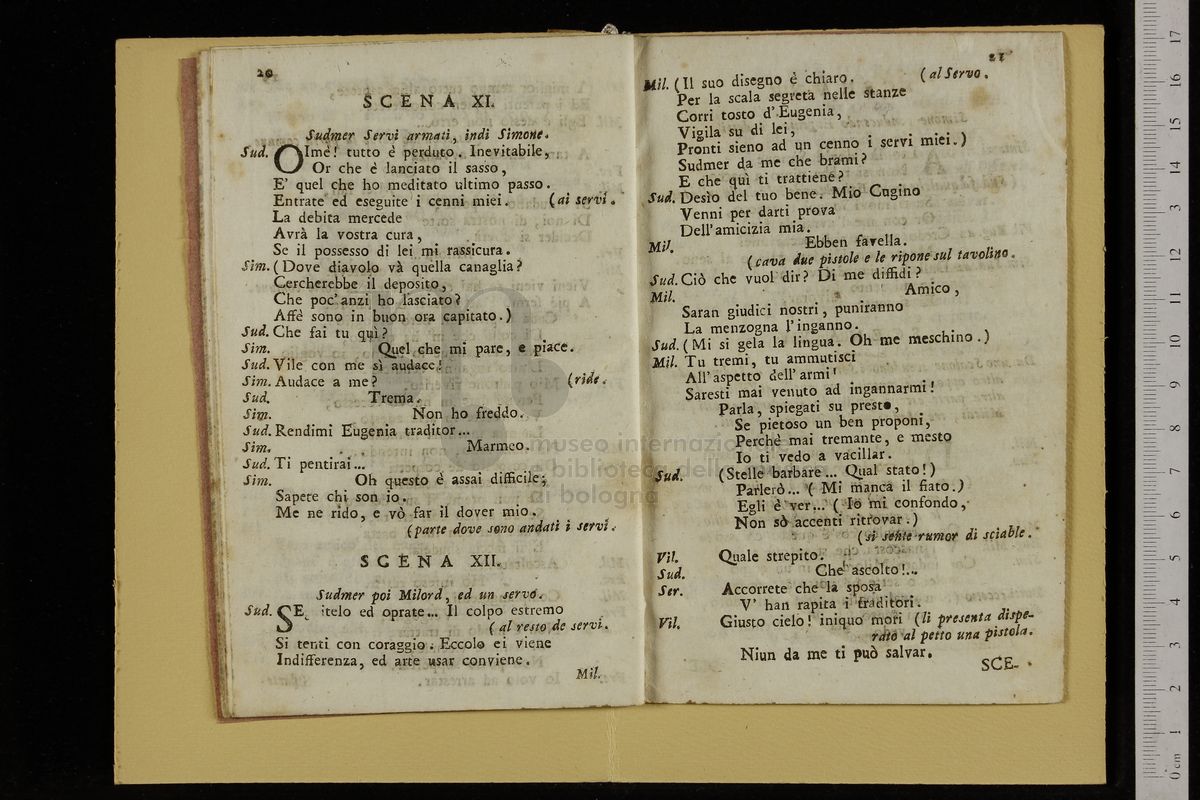 20
SCENA XI.
Sudmer Servi armati, indi Simone.
Sud. OImè! tutto è perduto. Inevitabile,
Or che è lanciato il sasso,
E' quel che ho meditato ultimo passo.
Entrate ed eseguite i cenni miei. (ai servi.
La debita mercede
Avrà la vostra cura,
Se il possesso di lei mi rassicura.
Sim. (Dove diavolo và quella canaglia?
Cercherebbe il deposito,
Che poc'anzi ho lasciato?
Affè sono in buon ora capitato.)
Sud. Che fai tu quì?
Sim. Quel che mi pare, e piace.
Sud. Vile con me sì audace!
Sim. Audace a me? (ride.
Sud. Trema.
Sim. Non ho freddo.
Sud. Rendimi Eugenia traditor...
Sim. Marmeo.
Sud. Ti pentirai...
Sim. Oh questo è assai difficile;
Sapete chi son io.
Me ne rido, e vò far il dover mio.
(parte dove sono andati i servi.
SCENA XII.
Sudmer poi Milord, ed un servo.
Sud. SE itelo ed oprate... Il colpo estremo
(al resto de servi.
Si tenti con coraggio. Eccolo ei viene
Indifferenza, ed arte usar conviene.
Mil.
21
Mil. (Il suo disegno è chiaro. (al Servo.
Per la scala segreta nelle stanze
Corri tosto d'Eugenia,
Vigila su di lei,
Pronti sieno ad un cenno i servi miei.)
Sudmer da me che brami?
E che quì ti trattiene?
Sud. Desìo del tuo bene. Mio Cugino
Venni per darti prova
Dell'amicizia mia.
Mil. Ebben favella.
(cava due pistole e le ripone sul tavolino.
Sud. Ciò che vuol dir? Di me diffidi?
Mil. Amico,
Saran giudici nostri, puniranno
La menzogna l'inganno.
Sud. (Mi si gela la lingua. Oh me meschino.)
Mil. Tu tremi, tu ammutisci
All'aspetto dell'armi!
Saresti mai venuto ad ingannarmi!
Parla, spiegati su presto,
Se pietoso un ben proponi,
Perchè mai tremante, e mesto
Io ti vedo a vacillar.
Sud. (Stelle barbare... Qual stato!)
Parlerò... (Mi manca il fiato.)
Egli è ver... (Io mi confondo,
Non sò accenti ritrovar.)
(si sente rumor di sciable.
Vil. Quale strepito.
Sud. Che ascolto!...
Ser. Accorrete che la sposa
V' han rapita i traditori.
Vil. Giusto cielo! iniquo mori (li presenta dispe-
rato al petto una pistola.
Niun da me ti può salvar.
SCE-
museo internazio
e biblioteca della
di bologna
0 cm 1 2 3 4 5 6 7 8 9 10 11 12 13 14 15 16 17